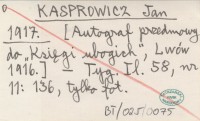 KASPROWICZ Jan
1917. [Autograf przedmowy
do „Księgi ubogich", Lwów
1916.] — Tyg. Il. 58, nr
11: 136, tylko fot.
BT/025/0075